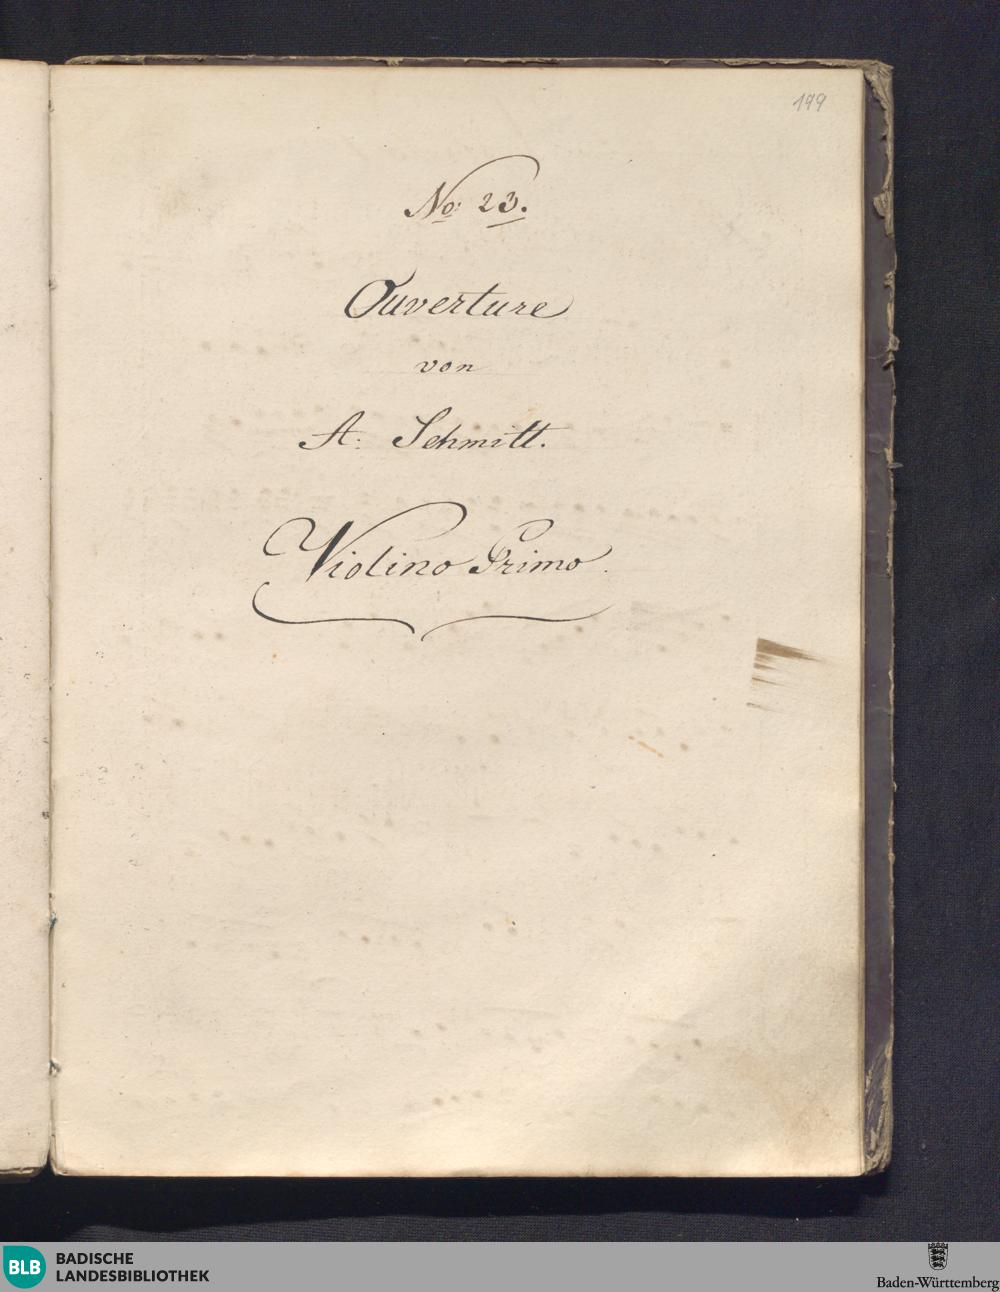 199
No: 23.
Ouverture
von
A: Schmitt.
Violino Primo.
BLB BADISCHE
LANDESBIBLIOTHEK
Baden-Württemberg